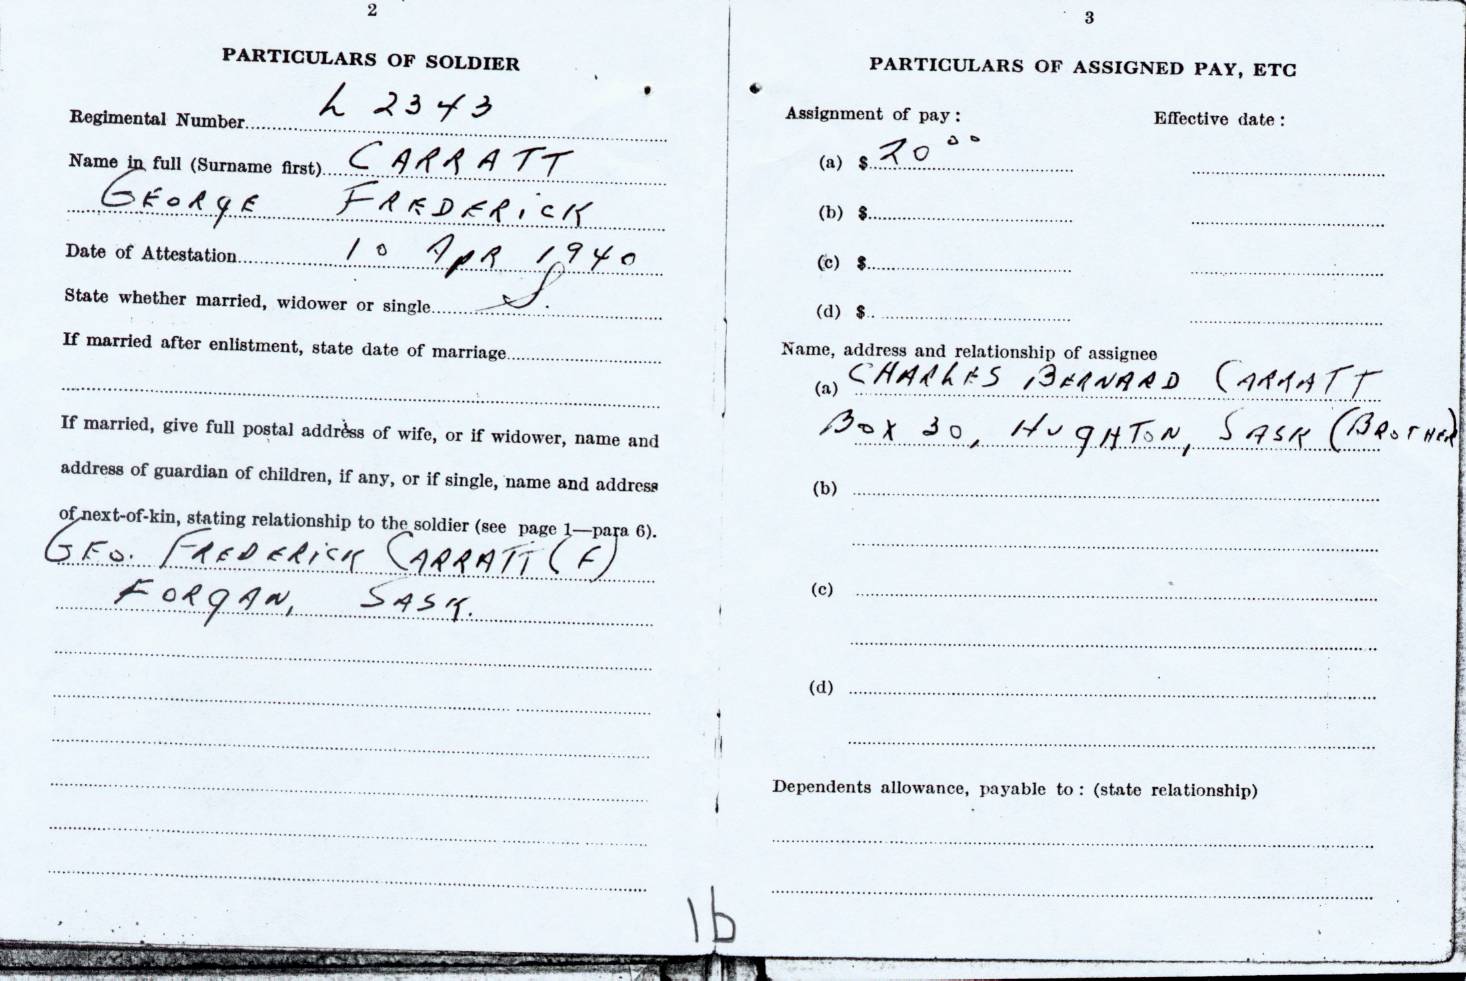 2
PARTICULARS OF SOLDIER
Regimental Number L 2343
Name in full (Surname first) CARRATT
GEORGE FREDERICK
Date of Attestation 10 APR 1940
State whether married, widower or single S.
If married after enlistment, state date of marriage
If married, give full postal address of wife, or if widower, name and
address of guardian of children, if any, or if single, name and address
of next-of-kin, stating relationship to the soldier (see page 1—para 6).
GEO. FREDERICK CARRATT (F)
FORGAN, SASK.
3
PARTICULARS OF ASSIGNED PAY, ETC
Assignment of pay : Effective date :
(a) $ 20 00
(b) $
(c) $
(d) $
Name, address and relationship of assignee
(a) CHARLES BERNARD CARRATT
BOX 30, HUGHTON, SASK (BROTHER
(b)
(c)
(d)
Dependents allowance, payable to : (state relationship)
1b